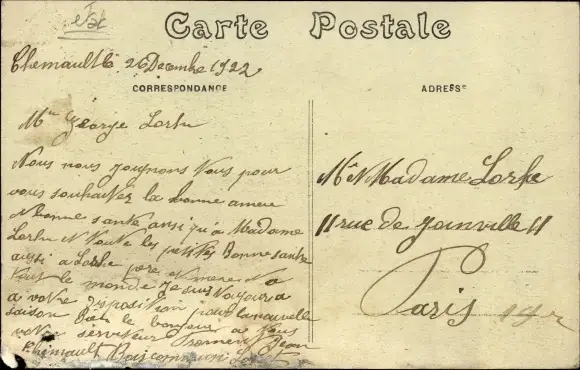 Carte Postale
Chemault le 26 Decembre 1922
CORRESPONDANCE
ADRESSE
Mr George Lorke
Nous nous joignons Vous pour
vous souhaiter la bonne anneu
bonne sante ansi qu'a Madame
Lorke Toute les petites Bonne sante
aussi a Lorke pere et mere
tout le monde Je suis toujours a
a votre disposition pour la nouvelle
saison Bien le bonjour a Vous
votre serviteur Jean
Chemault Boiscommun Loiret
Mr Madame Lorke
11 rue de Joinville 11
Paris 19e